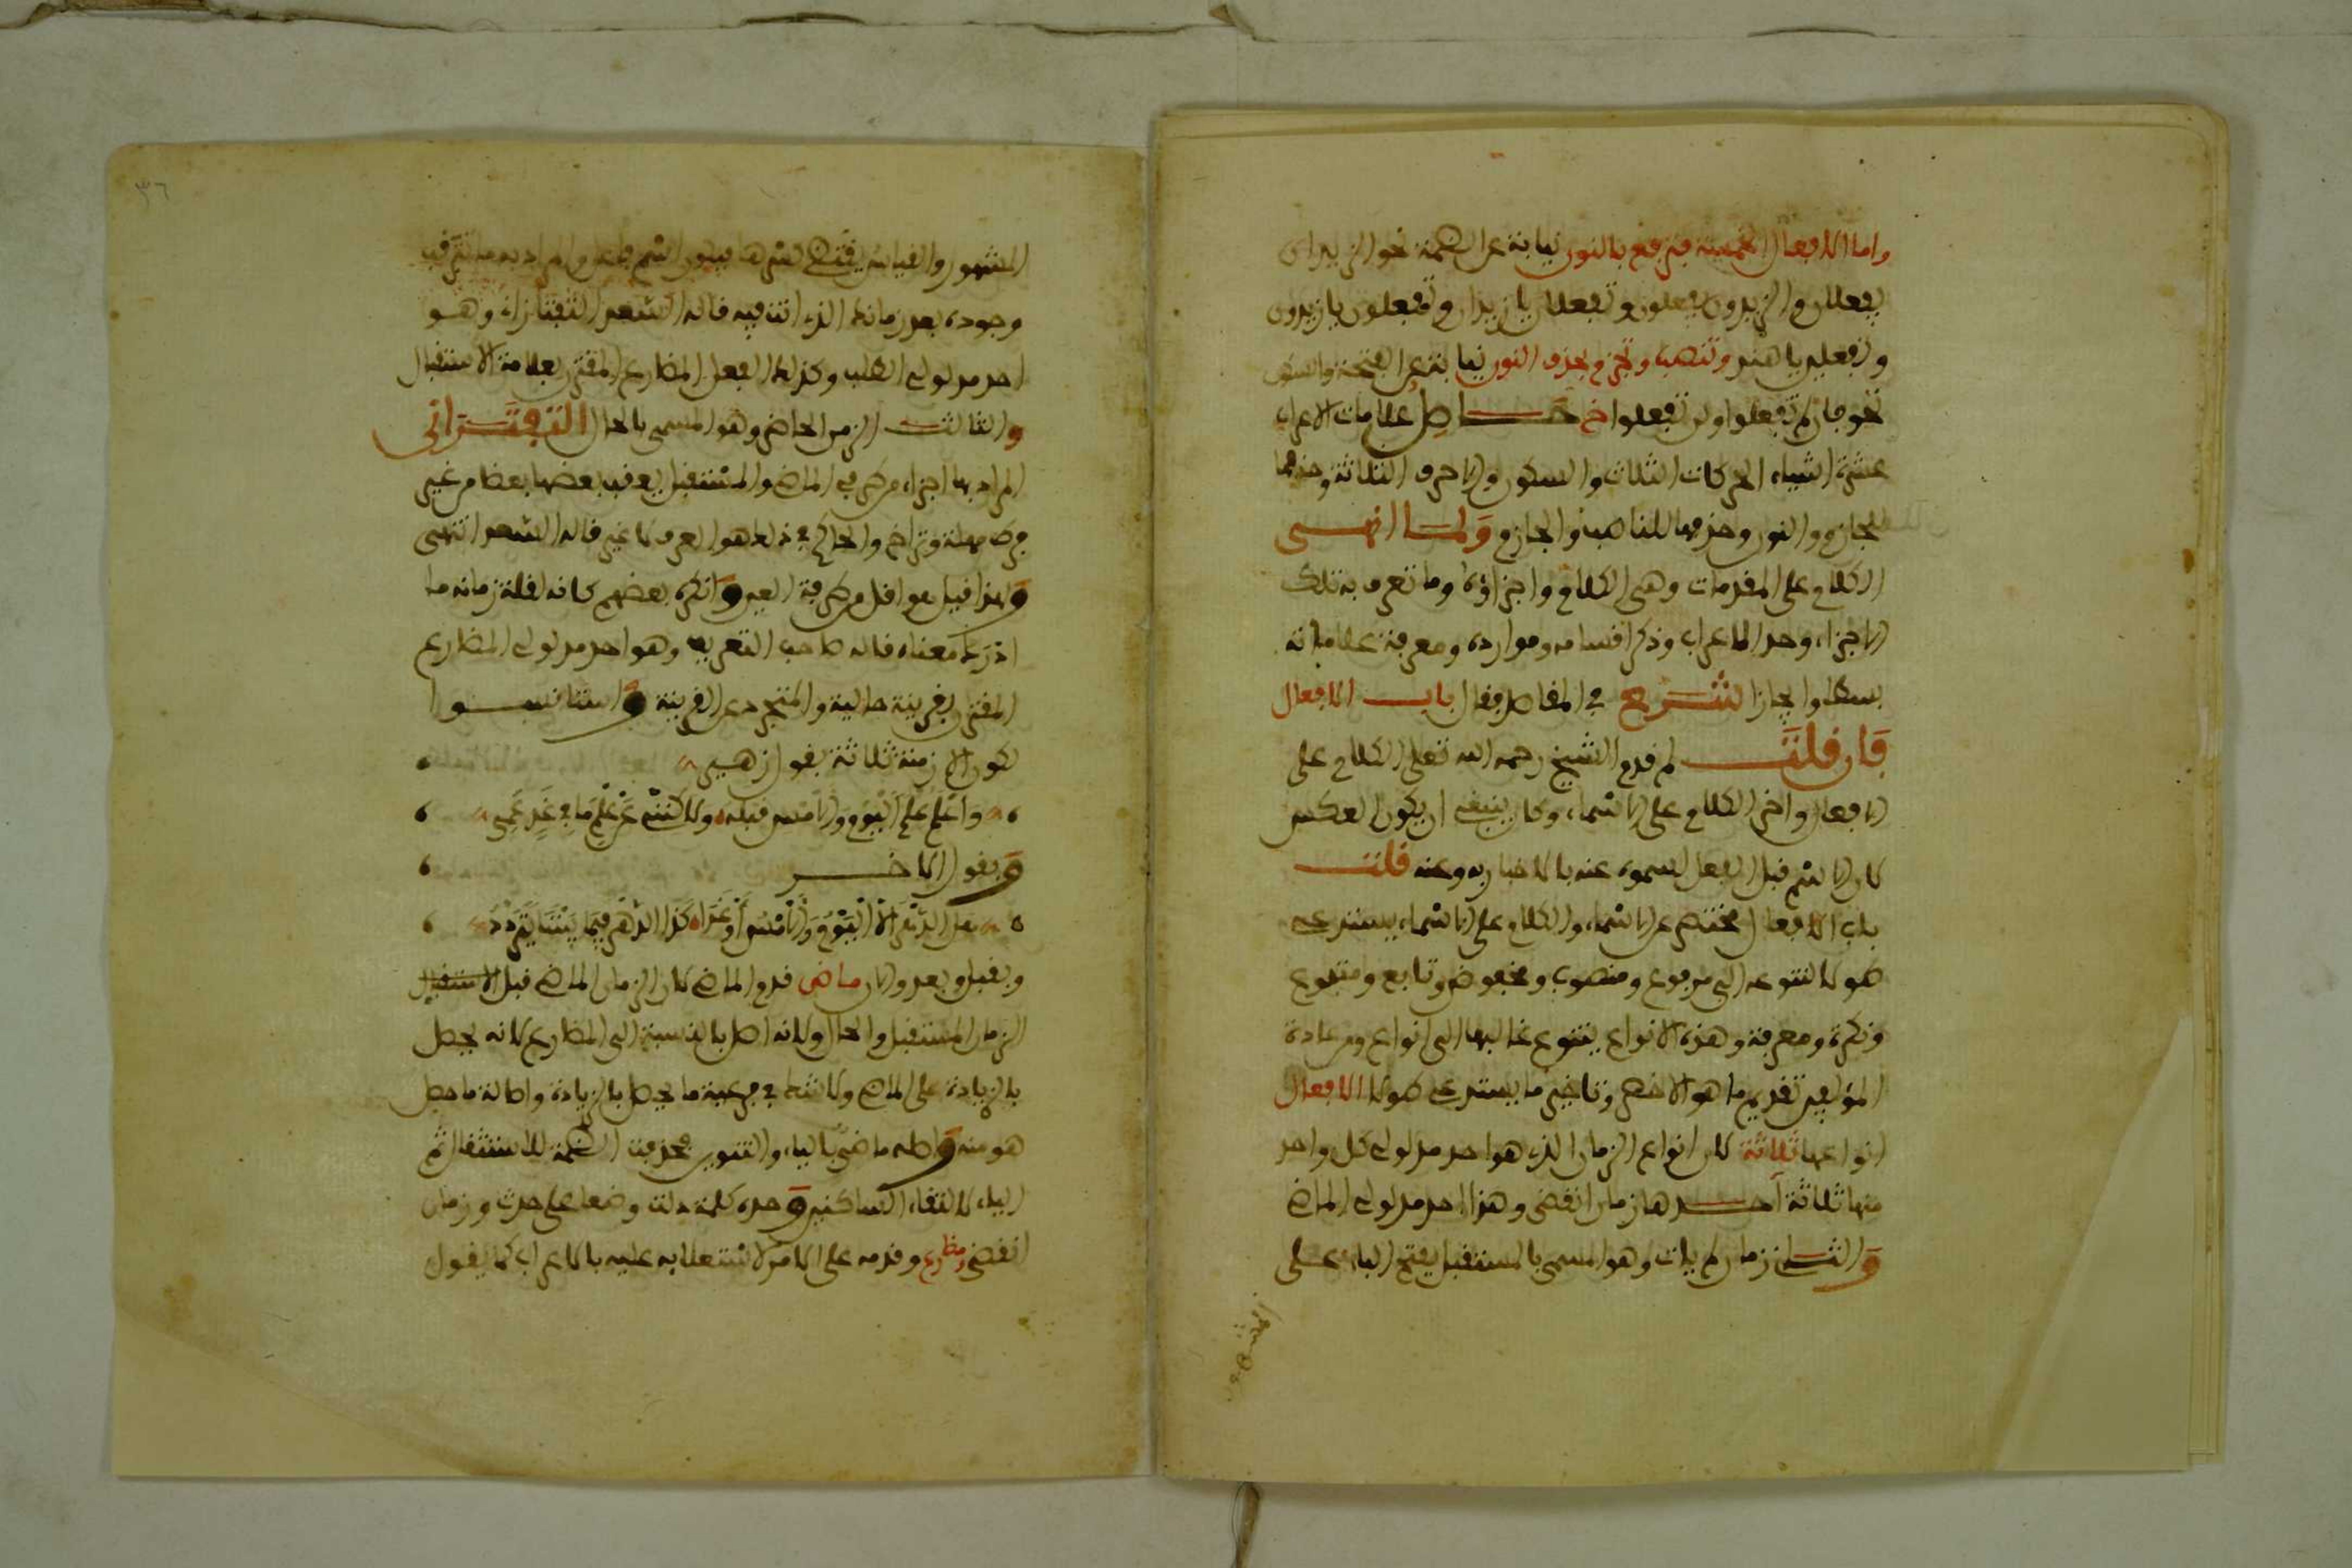 واما الافعال الخمسة فترفع بالنون نيابة عن الضمة نحو الزيدان
يفعلان والزيدون يفعلون وتفعلان يا زيدان وتفعلون يا زيدون
وتفعلين يا هند وتنصب وتجزم بحذف النون نيابة عن الفتحة والسكون
نحو فان لم تفعلوا ولن تفعلوا خ حـــاصل علامات الاعراب
عشرة اشياء الحركات الثلاث والسكون والاحرف الثلاثة وحذفها
للجازم والنون وحذفها للناصب والجازم ولما انهى
الكلام على المقدمات وهي الكلام واجزاؤه وما تعرف به تلك
الاجزاء وحد الاعراب وذكر اقسامه وموارده ومعرفة علاماته
بسطا وايجازا شرع في المقاصد فقال باب الافعال
فان قلت لم قدم الشيخ رحمه الله تعلى الكلام على
الافعال واخر الكلام على الاسماء وكان ينبغي ان يكون العكس
لان الاسم قبل الفعل لسموه عنه بالاخبار به وعنه قلت
باب الافعال مختصر عن الاسماء والكلام على الاسماء يستدعي
طولا لتنوعه الى مرفوع ومنصوب ومخفوض وتابع ومتبوع
ونكرة ومعرفة وهذه الانواع يتنوع غالبها الى انواع ومن عادة
المؤلفين تقديم ما هو الاخصر وتاخير ما يستدعي طولا الافعال
انواعها ثلاثة لان انواع الزمان الذي هو احد مدلولي كل واحد
منها ثلاثة احدها زمان انقضى وهذا احد مدلولي الماضي
والثاني زمان لم يات وهو المسمى بالمستقبل بفتح الباء على
المشهور
٣٦
المشهور والقياس يقتضي كسرها فيكون اسم فاعل والمراد به ما يترقب
وجوده بعد زمانك الذي انت فيه قاله السعد التفتازاني وهو
احد مدلولي الطلب وكذلك الفعل المضارع المقترن بعلامة الاستقبال
والثالث الزمن الحاضر وهو المسمى بالحال التفتزانى
المراد بها اجزاء من طرفي الماضي والمستقبل يعقب بعضها بعضا من غير
فرط مهلة وتراخ والحاكم في ذلك هو العرف لا غير قاله السعد انتهى
ولهذا قيل هو اقل من طرفة العين وانكره بعضهم كانه لقلة زمانه ما
ادرك معناه قاله صاحب التعريف وهو احد مدلولي المضارع
المقترن بقرينة حالية والمتجرد عن القرينة واستانسوا
لكون الازمنة ثلاثة بقول زهير
واعلم علم اليوم والامس قبله ولاكنني عن علم ما في غد عمي
وبقول الاخر
هل الدهر الا اليوم والامس او غدا كذا الدهر فيما بيننا يتردد
وبقبل وبعد والان ماضى قدم الماضي لان الزمان الماضي قبل الاستقبال
الزمان المستقبل والحال ولانه اصل بالنسبة الى المضارع لانه يحصل
بالزيادة على الماضي ولا شك في فرعية ما يحصل بالزيادة واصالة ما حصل
هو منه واصله ماضي بالياء والتنوين فحذفت الضمة للاستثقال ثم
الياء لالتقاء الساكنين وحده كلمة دلت وضعا على حدث وزمان
انقضى ومضارع وقدمه على الامر لاستعلائه عليه بالاعراب كما يقول